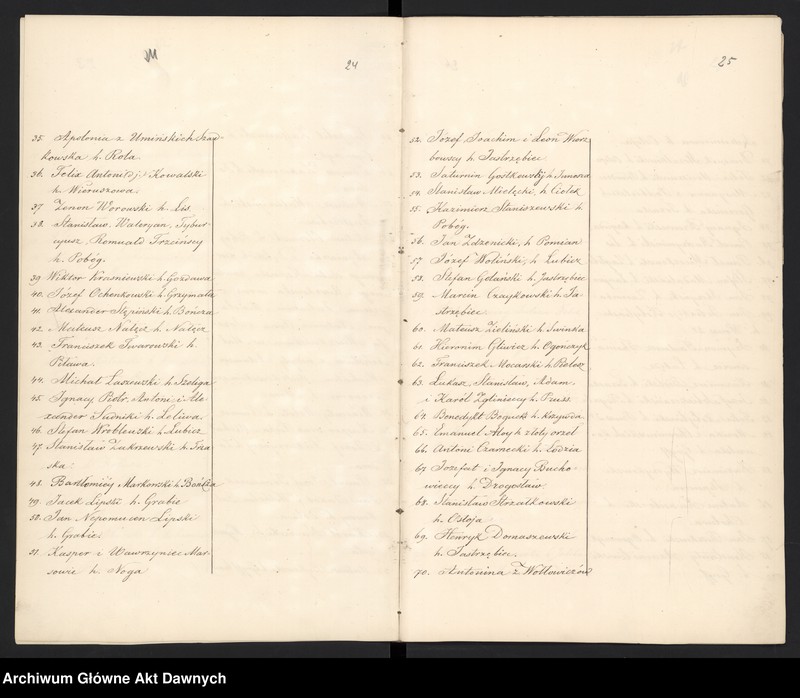 M
24
35. Apolonia z Umińskich Szad
kowska h. Rola.
36. Felix Antoni Kowalski
h. Wieruszowa.
37 Zenon Worowski h. Lis.
38. Stanisław, Waleryan, Tybur
cyusz, Romuald Trzcińscy
h. Pobóg.
39 Wiktor Krasniewski h. Gozdawa
40. Józef Ochenkowski h. Grzymała
41. Alexander Stępiński h. Bończa
42. Mateusz Nałęcz h. Nałęcz
43. Franciszek Twarowski h.
Pilawa.
44. Michał Laszewski h. Szeliga
45. Ignacy, Piotr, Antoni i Ale-
xander Sudniki h. Leliwa.
46. Stefan Wróblewski h. Lubicz
47. Stanisław Zakrzewski h. Trza
ska.
48. Bartłomiéy Markowski h. Bończa
49. Jacek Lipski h. Grabie
50. Jan Nepomucen Lipski
h. Grabie.
51. Kasper i Wawrzyniec Mas-
sowie h. Noga
25
52. Józef, Joachim i Leon Wierz
bowscy h. Jastrzębiec
53. Saturnin Gostkowski h. Junosza
54. Stanisław Mielęcki, h. Ciołek
55. Kazimierz Staniszewski h
Pobóg.
56. Jan Zdzenicki, h. Pomian
57 Józef Woliński, h. Lubicz
58. Stefan Golański h. Jastrzębiec
59. Marcin Czaykowski h. Ja
strzębiec
60. Mateusz Zieliński h. Swinka
61. Hieronim Gliwicz h. Ogończyk
62. Franciszek Mocarski h. Rolosz
63. Łukasz, Stanisław, Adam,
i Karól Zglinieccy h. Pruss.
64. Benedykt Bogucki h. Krzywda
65. Emanuel h. złoty orzeł
66. Antoni Czarnecki h. Łodzia
67. Jozefat i Ignacy Bucho-
wieccy h. Drogosław.
68. Stanisław Strzałkowski
h. Ostoja
69. Henryk Domaszewski
h. Jastrzębiec.
70. Antonina z Wołłowiczów
Archiwum Główne Akt Dawnych